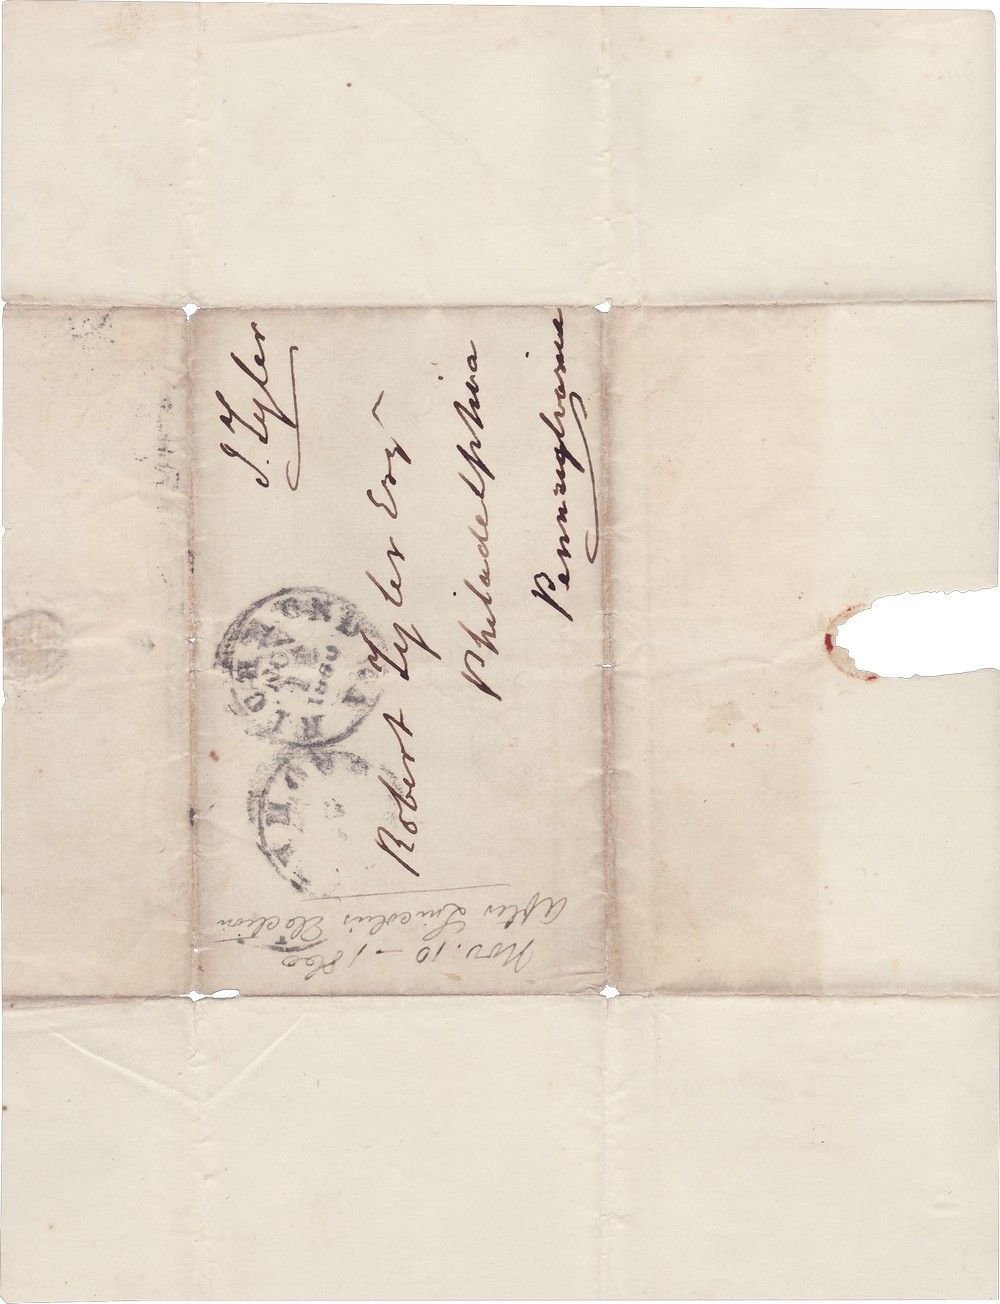 J. Tyler
Robert Tyler Esqr
Philadelphia
Pennsylvania
RICHMOND
NOV
1860
Nov. 10 – 1860
After Lincoln's Election